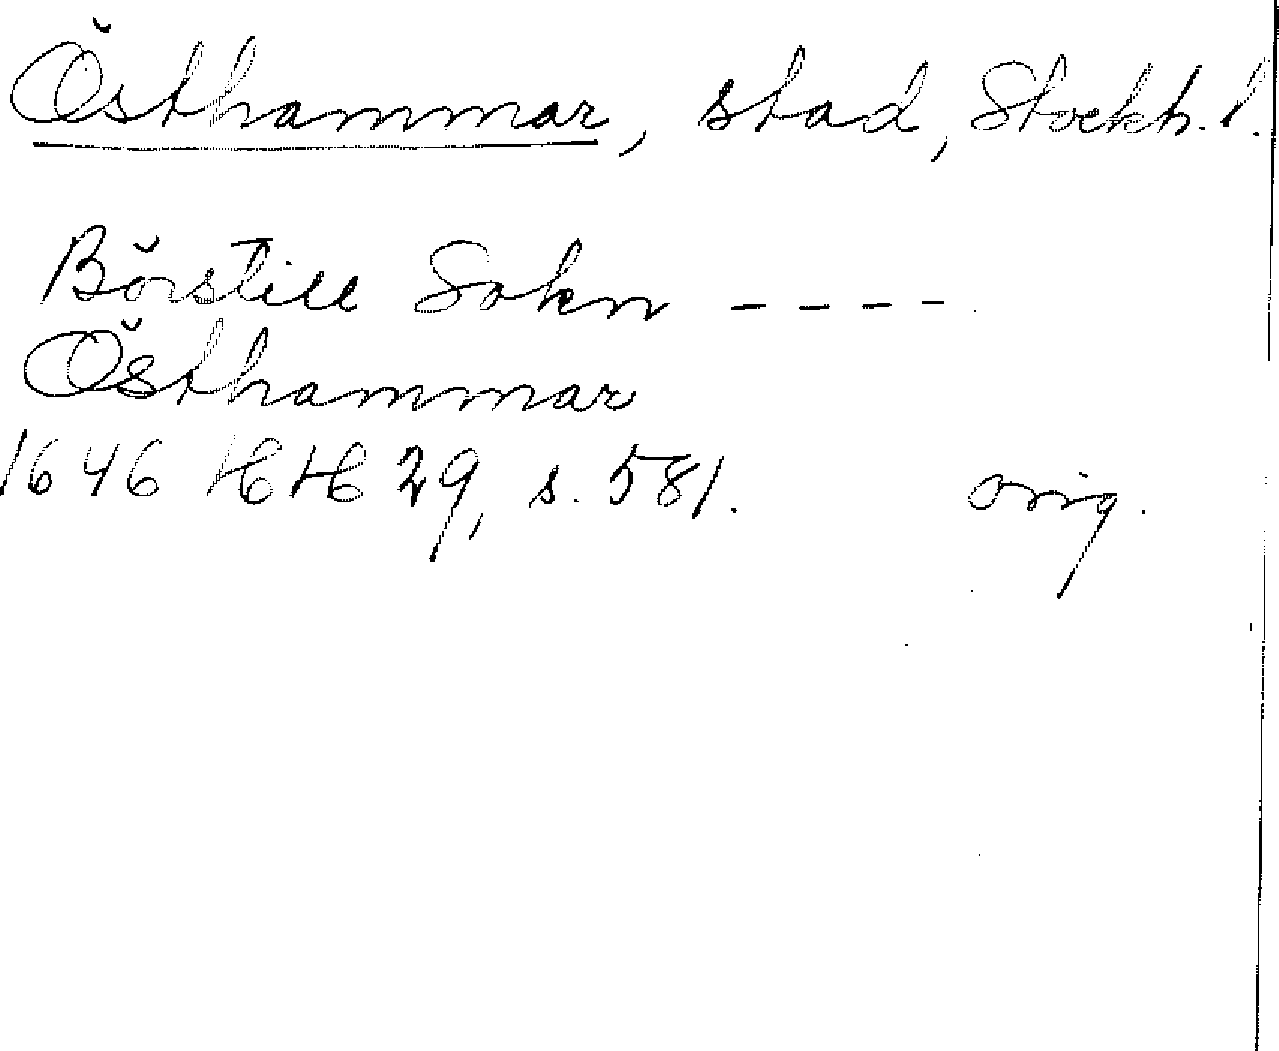 Östhammar, stad, Stockh. l.
Börstill Sokn ----
Östhammar
1646 HH 29, s. 581. orig.